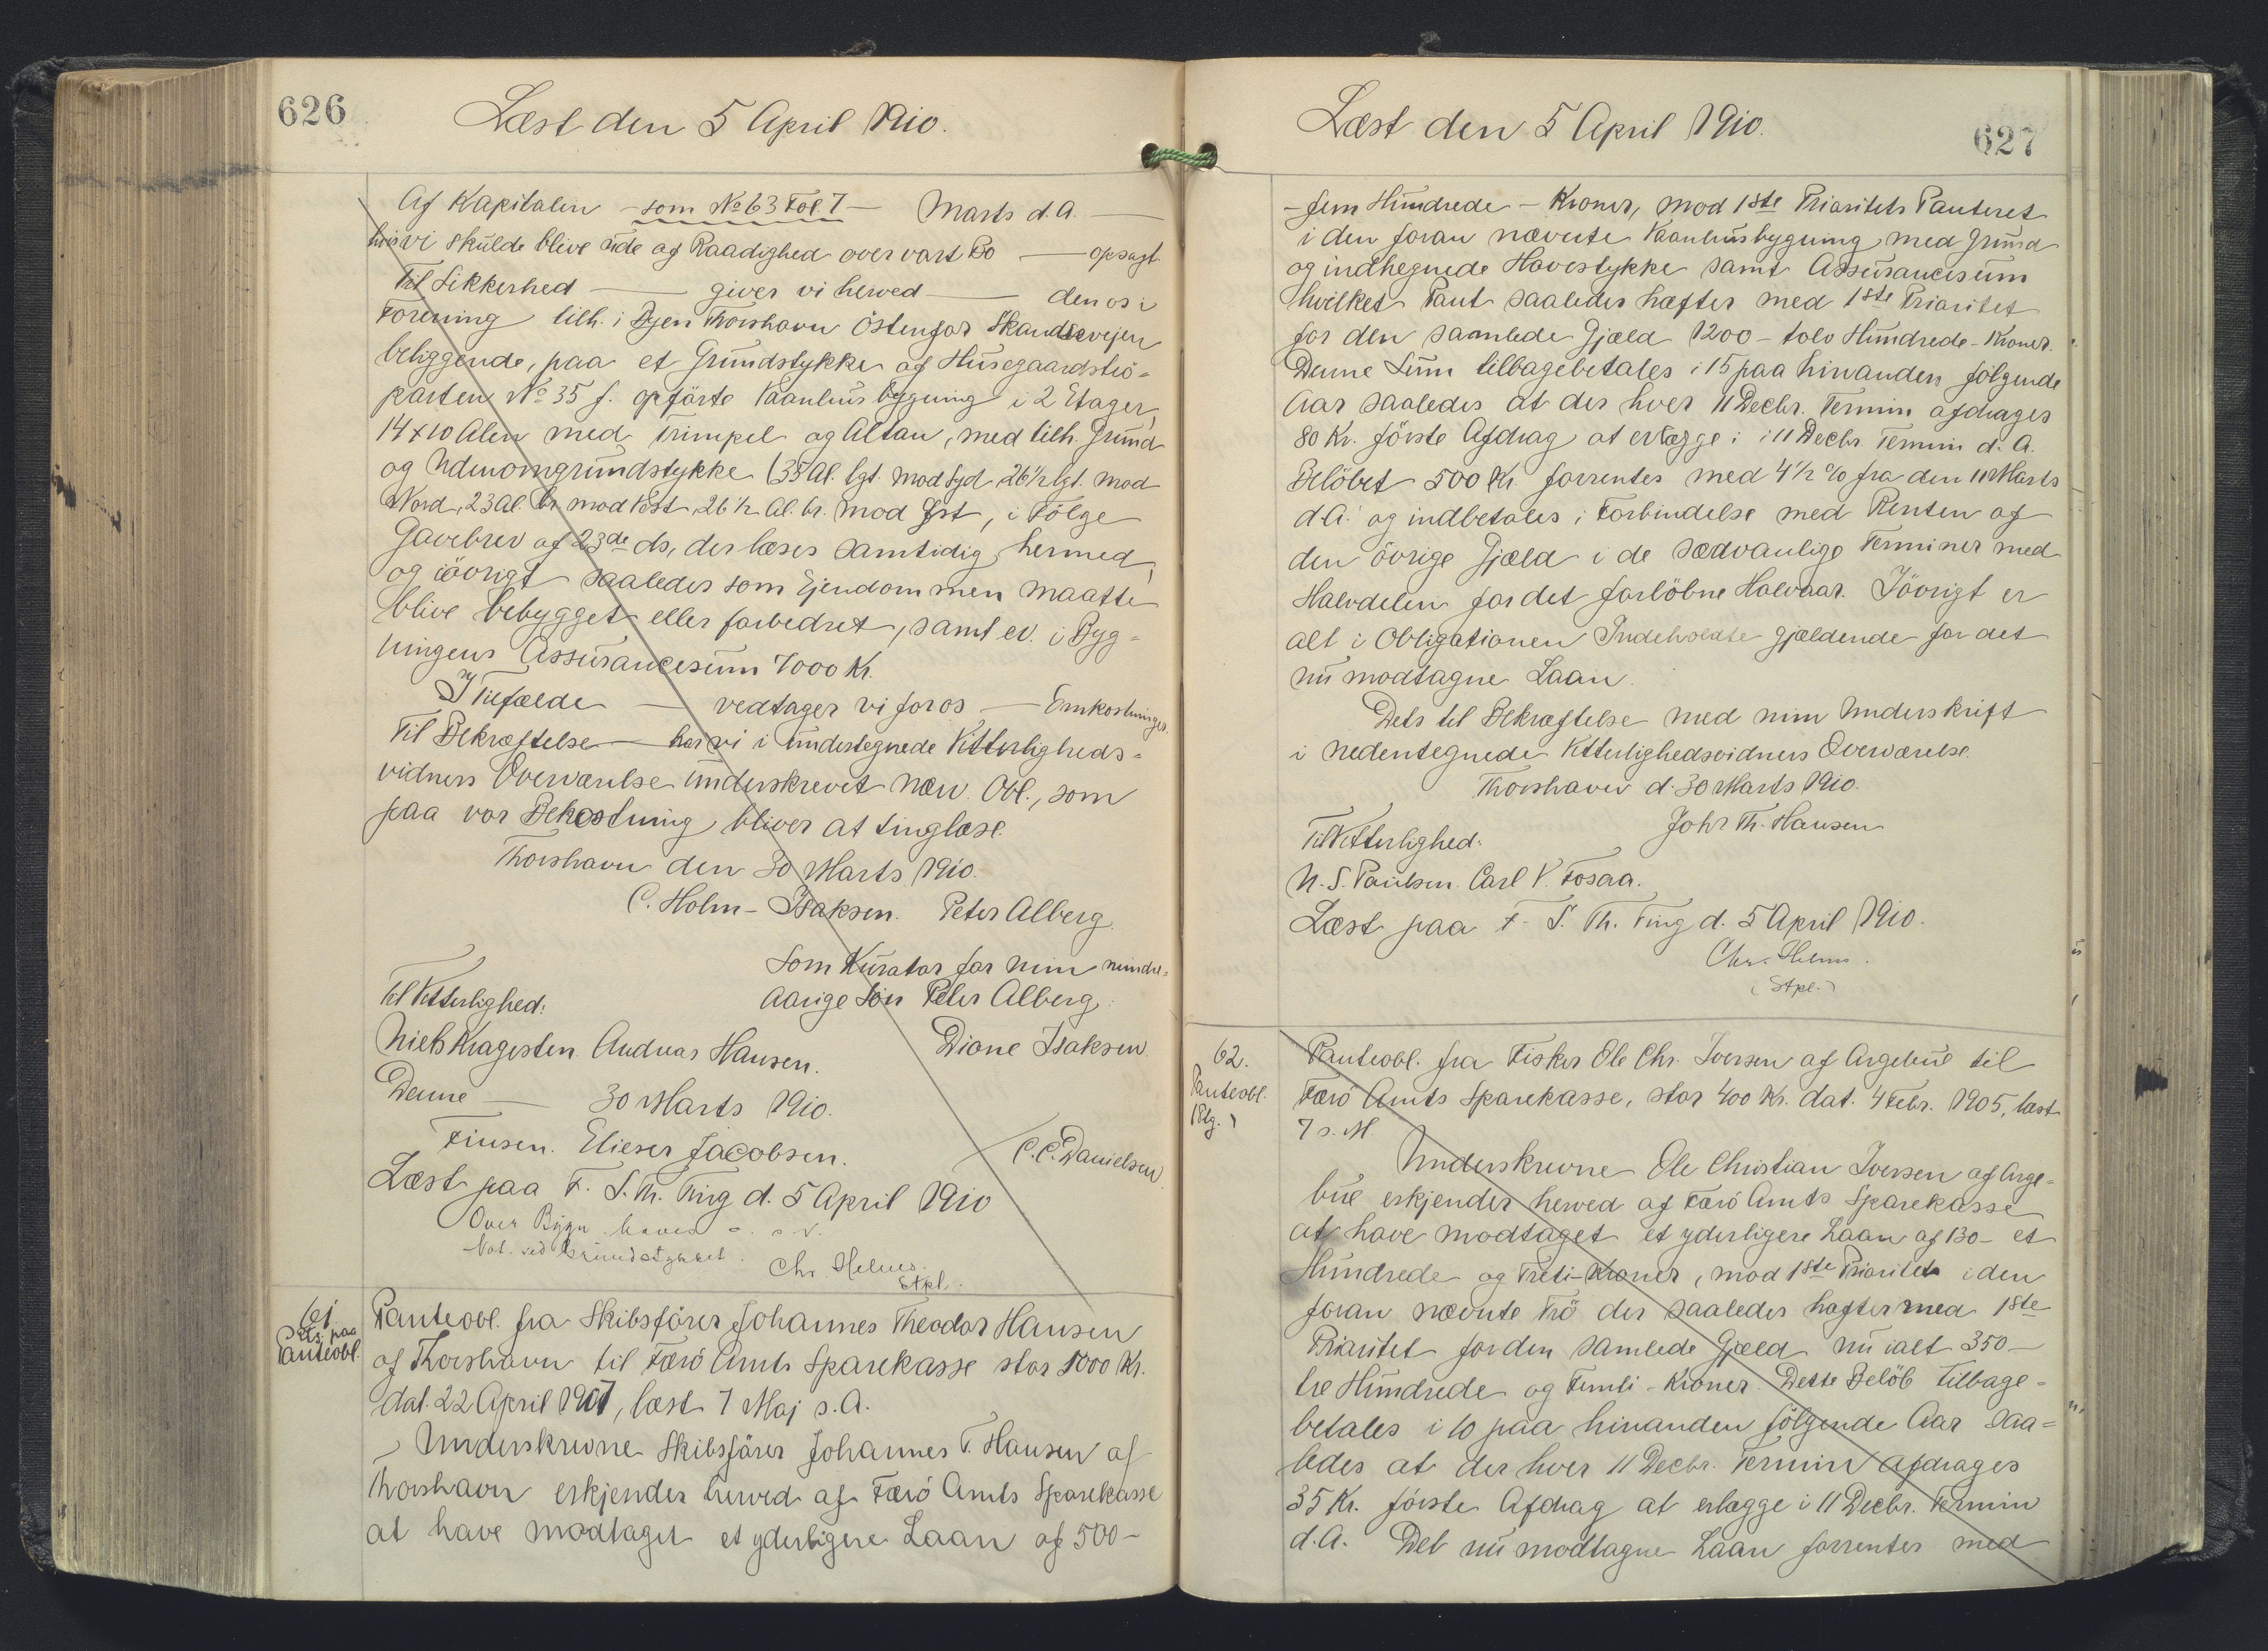 626
Læst den 5 April 1910.
Af Kapitalen - som No 63 Fol. 7 - Marts d. A. —
hvis vi skulde blive ude af Raadighed over vort Bo — opsagt.
Til Sikkerhed — giver vi herved — den os i
Forening tilh. i Byen Thorshavn Östenfor Skandsevejen
beliggende, paa et Grundstykke af Husegaardströ-
parten No 35 f. opförte Vaanhusbygning i 2 Etager,
14 x 10 Alen med Trimpel og Altan, med tilh. Grund
og Udenomgrundstykke (35 Al. lgt. mod Syd, 26 1/2 lgt. mod
Nord, 23 Al. br. mod Vest, 26 1/2 Al. br. mod Øst, i Fölge
Gavebrev af 23de ds, der læses samtidig hermed,
og iövrigt saaledes som Ejendommen maatte
blive bebygget eller forbedret, samt ev. i Byg-
ningens Assurancesum 7000 Kr.
I Tilfælde — vedtager vi for os — Omkostninger.
Til Bekræftelse — har vi i undertegnede Vitterligheds-
vidners Overværelse underskrevet nærv. Obl., som
paa vor Bekostning bliver at tinglæse.
Thorshavn den 30 Marts 1910.
C. Holm - Isaksen. Peter Alberg.
Som Kurator for min minder-
Til Vitterlighed: aarige Sön Peter Alberg:
Niels Kragesten Andreas Hansen. Diane Isaksen.
Denne — 30 Marts 1910.
Finsen. Elieser Jacobsen. C. C. Danielsen.
Læst paa F. S. Th. Ting d. 5 April 1910
Over Bygn.
Not. ved Grundstykket. Chr. Helms.
Stpl.
61.
Pts. paa
Panteobl.
Panteobl. fra Skibsförer Johannes Theodor Hansen
af Thorshavn til Færö Amts Sparekasse stor 1000 Kr.
dat. 22 April 1907, læst 7 Maj s. A.
Underskrevne Skibsförer Johannes T. Hansen af
Thorshavn erkjender herved af Færö Amts Sparekasse
at have modtaget et yderligere Laan af 500 -
627
Læst den 5 April 1910.
- fem Hundrede - Kroner, mod 1ste Prioritets Panteret
i den foran nævnte Vaanhusbygning med Grund
og indhegnede Havestykke samt Assurancesum
hvilket Pant saaledes hæfter med 1ste Prioritet
for den samlede Gjæld 1200 - tolv Hundrede - Kroner.
Denne Sum tilbagebetales i 15 paa hinanden fölgende
Aar saaledes at der hver 11 Decbr. Termin afdrages
80 Kr. förste Afdrag at erlægge i 11 Decbr. Termin d. A.
Belöbet 500 Kr. forrentes med 4 1/2 % fra den 11 Marts
d A. og indbetales i Forbindelse med Renten af
den övrige Gjæld i de sædvanlige Terminer med
Halvdelen for det forlöbne Halvaar. Iövrigt er
alt i Obligationen Indeholdte gjældende for det
nu modtagne Laan.
Dets til Bekræftelse med min Underskrift
i nedentegnede Vitterlighedsvidners Overværelse.
Thorshavn d. 30 Marts 1910.
Johs Th. Hansen
Til Vitterlighed:
N. S. Paulsen. Carl V. Fosaa.
Læst paa F. S. Th. Ting d. 5 April 1910.
Chr. Helms.
(Stpl.)
62.
Panteobl.
Panteobl. fra Fisker Ole Chr. Iversen af Argebue til
Færö Amts Sparekasse, stor 400 Kr. dat. 4 Febr. 1905, læst
7 s. M.
Underskrevne Ole Christian Iversen af Arge-
bue erkjender herved af Færö Amts Sparekasse
at have modtaget et yderligere Laan af 130 - et
Hundrede og Treti - Kroner, mod 1ste Prioritet i den
foran nævnte Trö der saaledes hæfter med 1ste
Prioritet for den samlede Gjæld nu ialt 350 -
tre Hundrede og Femti - Kroner. Dette Belöb tilbage-
betales i 10 paa hinanden fölgende Aar saa-
ledes at der hver 11 Decbr. Termin afdrages
35 Kr. förste Afdrag at erlægge i 11 Decbr. Termin
d. A. Det nu modtagne Laan forrentes med